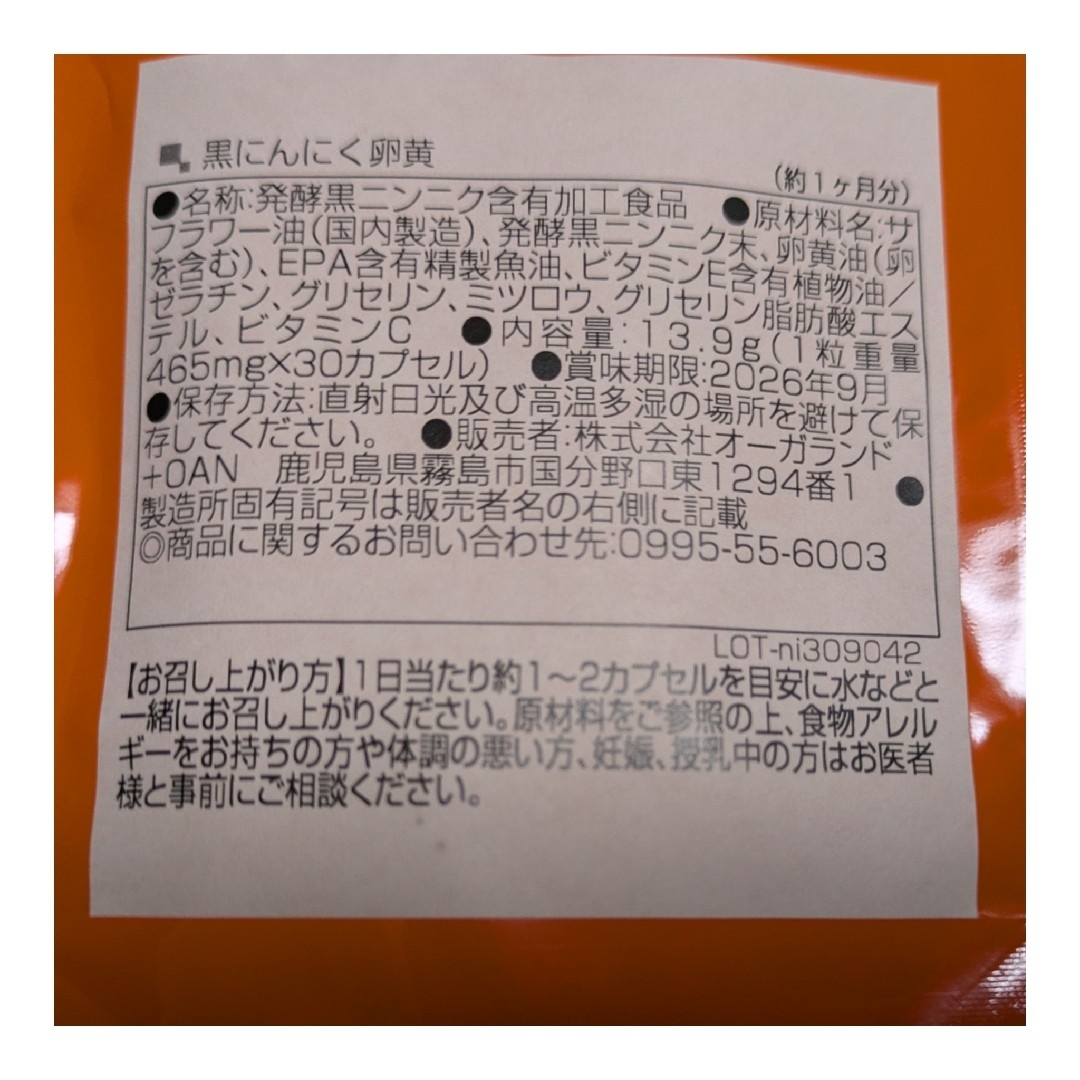 黒にんにく卵黄
(約1ヶ月分)
●名称:発酵黒ニンニク含有加工食品 ●原材料名:サ
フラワー油(国内製造)、発酵黒ニンニク末、卵黄油(卵
を含む)、EPA含有精製魚油、ビタミンE含有植物油/
ゼラチン、グリセリン、ミツロウ、グリセリン脂肪酸エス
テル、ビタミンC ●内容量:13.9g(1粒重量
465mg×30カプセル) ●賞味期限:2026年9月
●保存方法:直射日光及び高温多湿の場所を避けて保
存してください。 ●販売者:株式会社オーガランド
+OAN 鹿児島県霧島市国分野口東1294番1 ●
製造所固有記号は販売者名の右側に記載
◎商品に関するお問い合わせ先:0995-55-6003
LOT-ni309042
【お召し上がり方】1日当たり約1~2カプセルを目安に水などと
一緒にお召し上がりください。原材料をご参照の上、食物アレル
ギーをお持ちの方や体調の悪い方、妊娠、授乳中の方はお医者
様と事前にご相談ください。